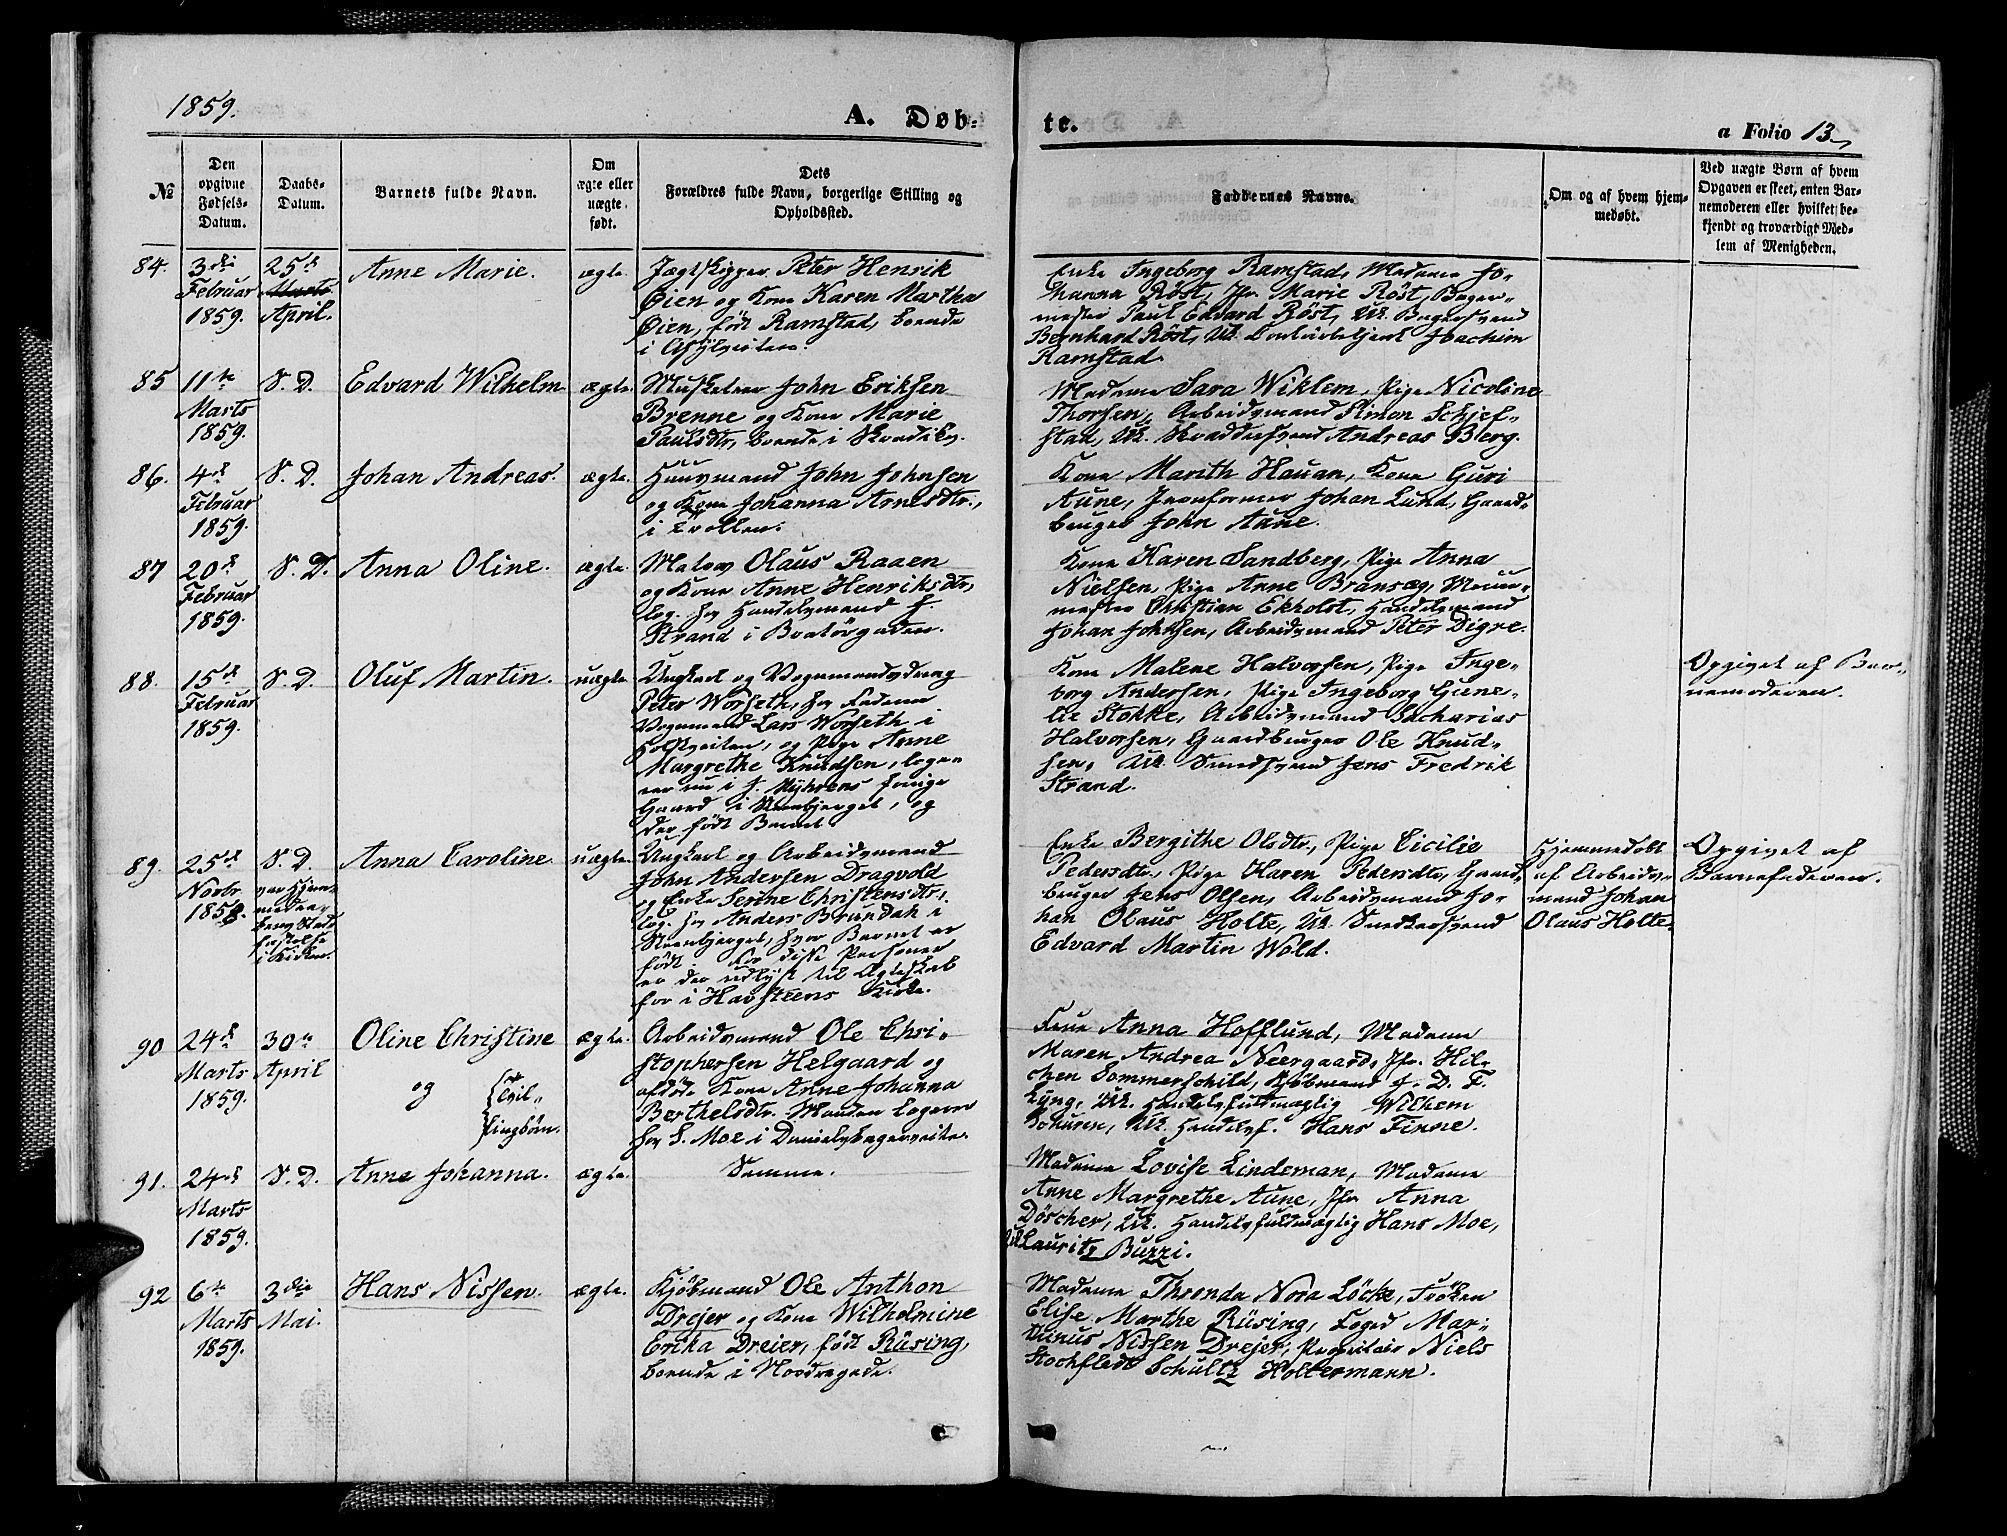 1859.
A. Døb-
te.
a Folio 13
№
Den
opgivne
Fødsels-
Datum.
Daabs-
Datum.
Barnets fulde Navn.
Om
ægte eller
uægte
født.
Dets
Forældres fulde Navn, borgerlige Stilling og
Opholdssted.
Faddernes Navne.
Om og af hvem hjem-
medøbt.
Ved uægte Børn af hvem
Opgaven er skeet, enten Bar-
nemoderen eller hvilket be-
kjendt og troværdigt Med-
lem af Menigheden.
84.
3die
Februar
1859.
25de
Marts
April.
Anne Marie.
ægte.
Jægtskipper Peter Henrik
Øien og Kone Karen Martha
Øien, født Ramstad, boende
i Asylveiten.
Enke Ingeborg Ramstad, Madame Jo-
hanna Röst, Jfr. Marie Röst, Bager-
mester Paul Edvard Röst, Uk. Bagersvend
Bernhard Röst, Uk. Joachim
Ramstad.
85
11te
Marts
1859.
S. D.
Edvard Wilhelm
ægte.
Musketeer John Eriksen
Brenne og Kone Marie
Paulsdtr, boende i
Madame Sara Wiklem, Pige Nicoline
Thorsen, Arbeidsmand Simon Schjef-
stad, Uk. Skræddersvend Andreas Berg.
86.
4de
Februar
1859.
S. D.
Johan Andreas.
ægte.
Huusmand John Johnsen
og Kone Johanna Arnesdtr.,
i Trollen.
Kone Marith Hauan, Kone Guri
Aune, Jernformer Johan Lund, Gaard-
bruger John Aune.
87
20de
Februar
1859.
S. D.
Anna Oline.
ægte.
Maler Olaus Raaen
og Kone Anne Henriksdtr,
log. hos Handelsmand J.
Strand i Bratörgaden.
Kone Karen Sandberg, Pige Anna
Nielsen, Pige Anne Bransæg, Muur-
mester Christian Ekholst, Handelsmand
Johan Johnsen, Arbeidsmand Peter Digre.
88.
15de
Februar
1859.
S. D.
Oluf Martin.
uægte
Ungkarl og Vognmandsdreng
Peter Worseth, hos Faderen
Vognmand Lars Worseth i
og Pige Anne
Margrethe Knudsen, loge-
rer nu i J. Myhrens forrige
Gaard i Steenbjerget, og
der født Barnet.
Kone Malene Halvorsen, Pige Inge-
borg Andersen, Pige Ingeborg Gune-
lie Stokke, Arbeidsmand Zacharias
Halvorsen, Gaardbruger Ole Knud-
sen, Uk. Smedsvend Jens Fredrik
Strand.
Opgivet af Bar-
nemoderen.
89.
25de
Novbr
1858.
S. D.
var Hjem-
medøbt
dens Stad-
fæstelse
i Kirken.
Anna Caroline.
uægte.
Ungkarl og Arbeidsmand
John Andersen Dragvold
og Enke Serine Christensdtr,
log. hos Anders Brandah i
Steenbjerget, hvor Barnet er
født. For disse Personer
er der udlyst til Ægteskab
for i Havsteens Kirke.
Enke Bergithe Olsdtr., Pige Cicilie
Pedersdtr., Pige Karen Pedersdtr, Gaard-
bruger Jens Olsen, Arbeidsmand Jo-
han Olaus Holte, Uk. Snedkersvend
Edvard Martin Wold.
Hjemmedøbt
af Arbeids-
mand Johan
Olaus Holte.
Opgivet af
Barnefaderen.
90
24de
Marts
1859.
30te
April
Oline Christine
og
Tvil-
lingbørn.
ægte.
Arbeidsmand Ole Chri-
stophersen Helgaard og
afdöde Kone Anne Johanna
Berthelsdtr. Manden logerer
hos L. Moe i Danielsbagerveiten.
Frue Anna Hofflund, Madame
Maren Andrea Neergaard, Jfr. Hil-
chen Sommerschild, Kjöbmand J. D. F.
Lyng, Uk. Handelsfuldmægtig Wilhem
Uk. Handelsf. Hans Finne.
91.
24de
Marts
1859.
S. D.
Anne Johanna.
ægte.
Samme.
Madame Lovise Lindeman, Madame
Anne Margrethe Aune, Jfr. Anna
Döscher, Uk. Handelsfuldmægtig Hans Moe,
Uk. Lauritz Buzzi.
92
6te
Marts
1859.
3die
Mai.
Hans Nissen.
ægte.
Kjøbmand Ole Anthon
Drejer og Kone Wilhelmine
Erika Dreier, født Rüsing,
boende i Nordregade.
Madame Thronda Nora Löcke, Fröken
Elise Marthe Rüsing, Foged Mar-
tinus Nissen Drejer, Proprietair Niels
Stochfledt Schultz Holtermann.